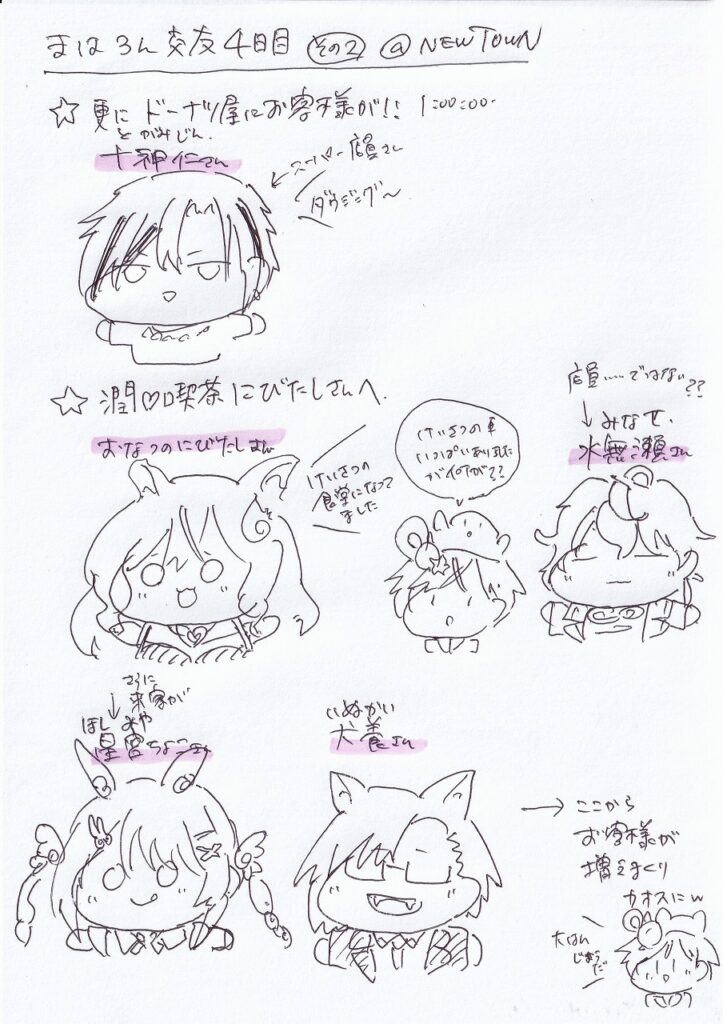 まはろん交友4日目 その2 @NEWTOWN
☆更にドーナツ屋にお客様が!! 1:00:00~
とがみじん
十神仁さん
スーパー店員さん
ダウジング〜
☆潤♡喫茶にびたしさんへ.
おなつのにびたしさん
けいさつの
食堂になって
ました
けいさつの車
いっぱいありました
が何が??
店員……ではない??
みなせ
水無瀬さん
さらに
来客が
ほしみや
星宮ちょこさん
いぬかい
犬養さん
→ここから
お客様が
増えまくり
カオスにw
大はん
じょうだ